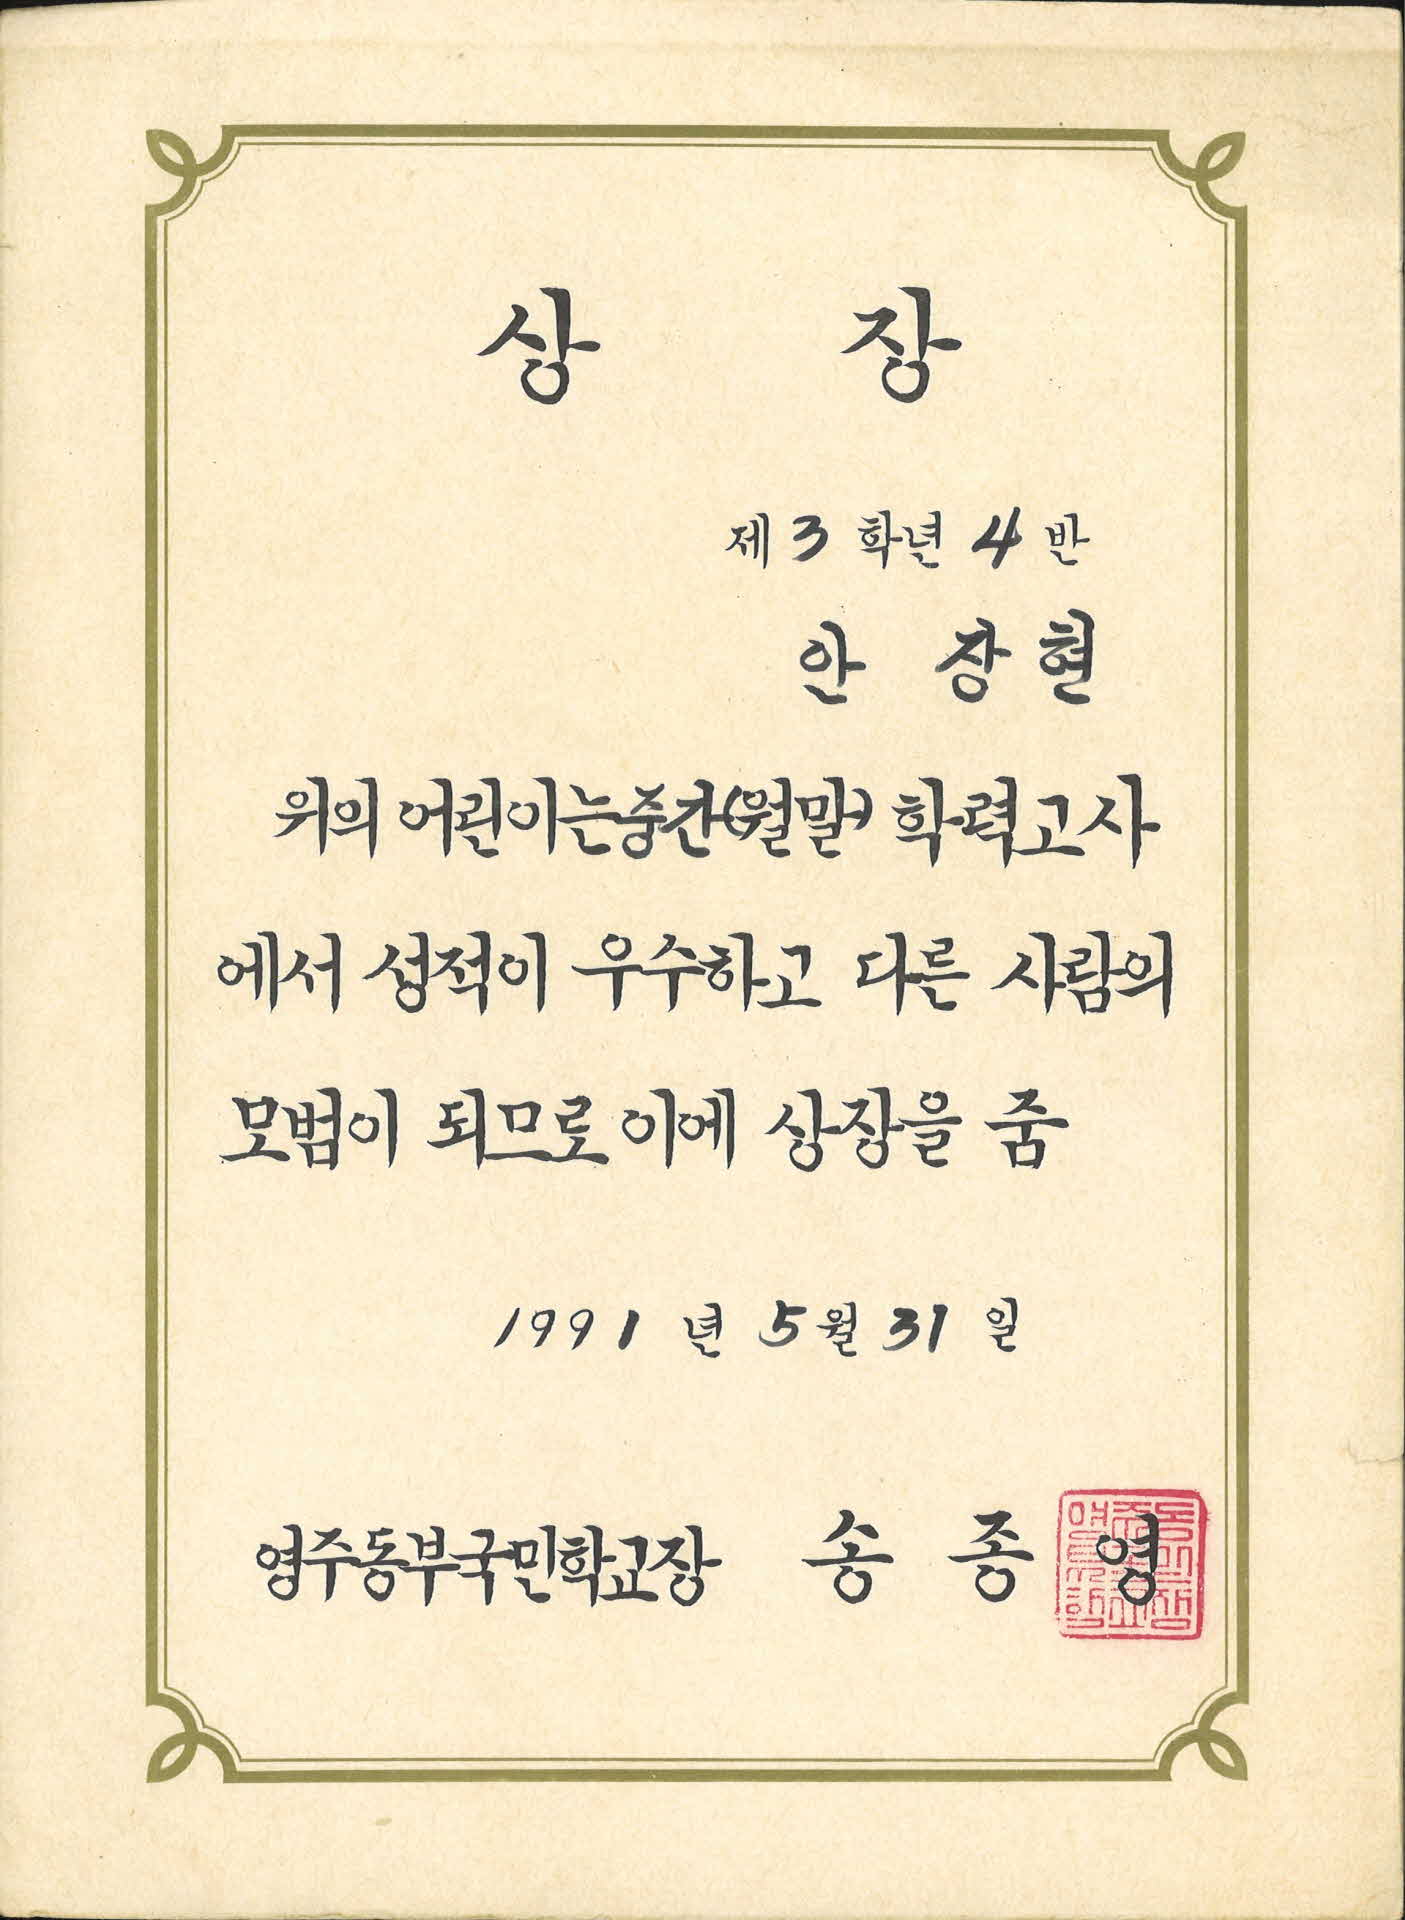 상 장
제 3 학년 4 반
안 장현
위의 어린이는 중간(월말) 학력고사
에서 성적이 우수하고 다른 사람의
모범이 되므로 이에 상장을 줌
1991 년 5 월 31 일
영주동부국민학교장 송 종 영